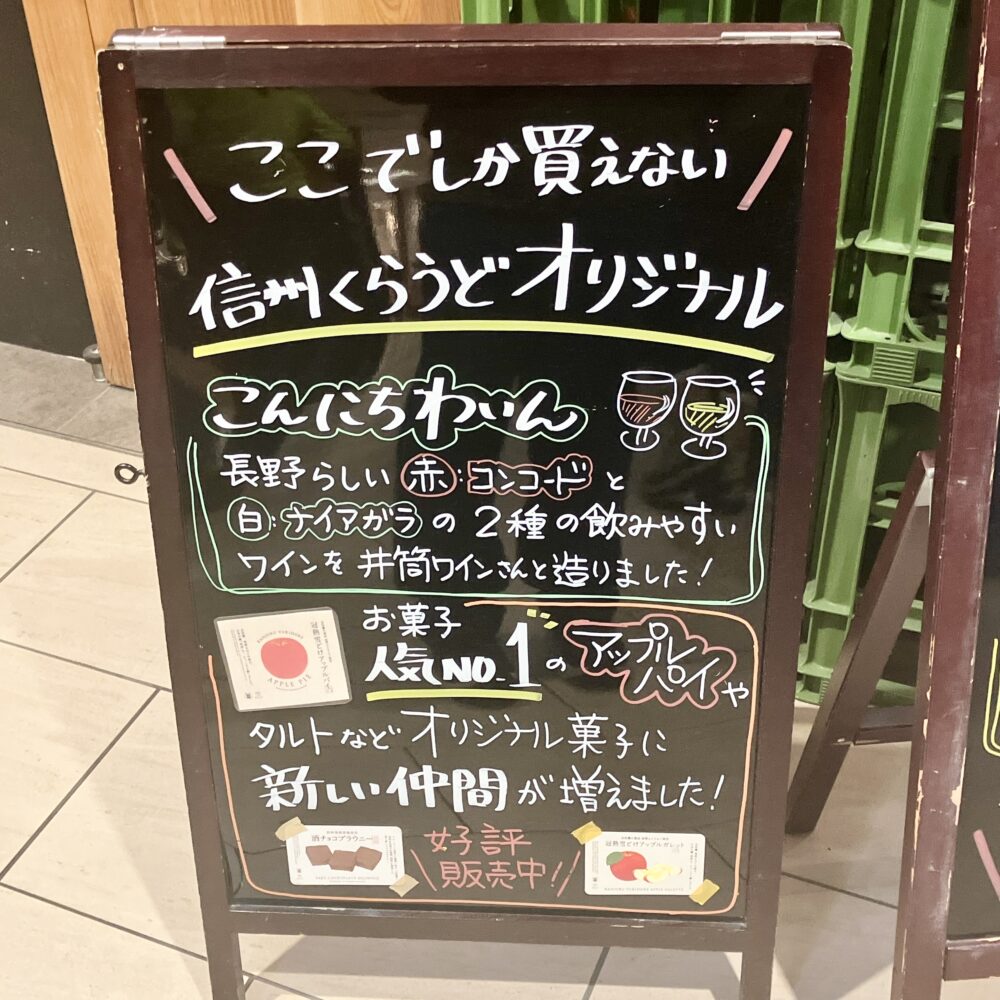 ここでしか買えない
信州くらうどオリジナル
こんにちわいん
長野らしい 赤:コンコードと
白:ナイアガラの2種の飲みやすい
ワインを井筒ワインさんと造りました!
お菓子
人気NO.1のアップルパイや
タルトなどオリジナル菓子に
新しい仲間が増えました!
好評
販売中!!
冠熱雪どけアップルパイ
APPLE PIE
酒チョコブラウニー
SAKE CHOCOLATE BROWNIE
冠熱雪どけアップルガレット